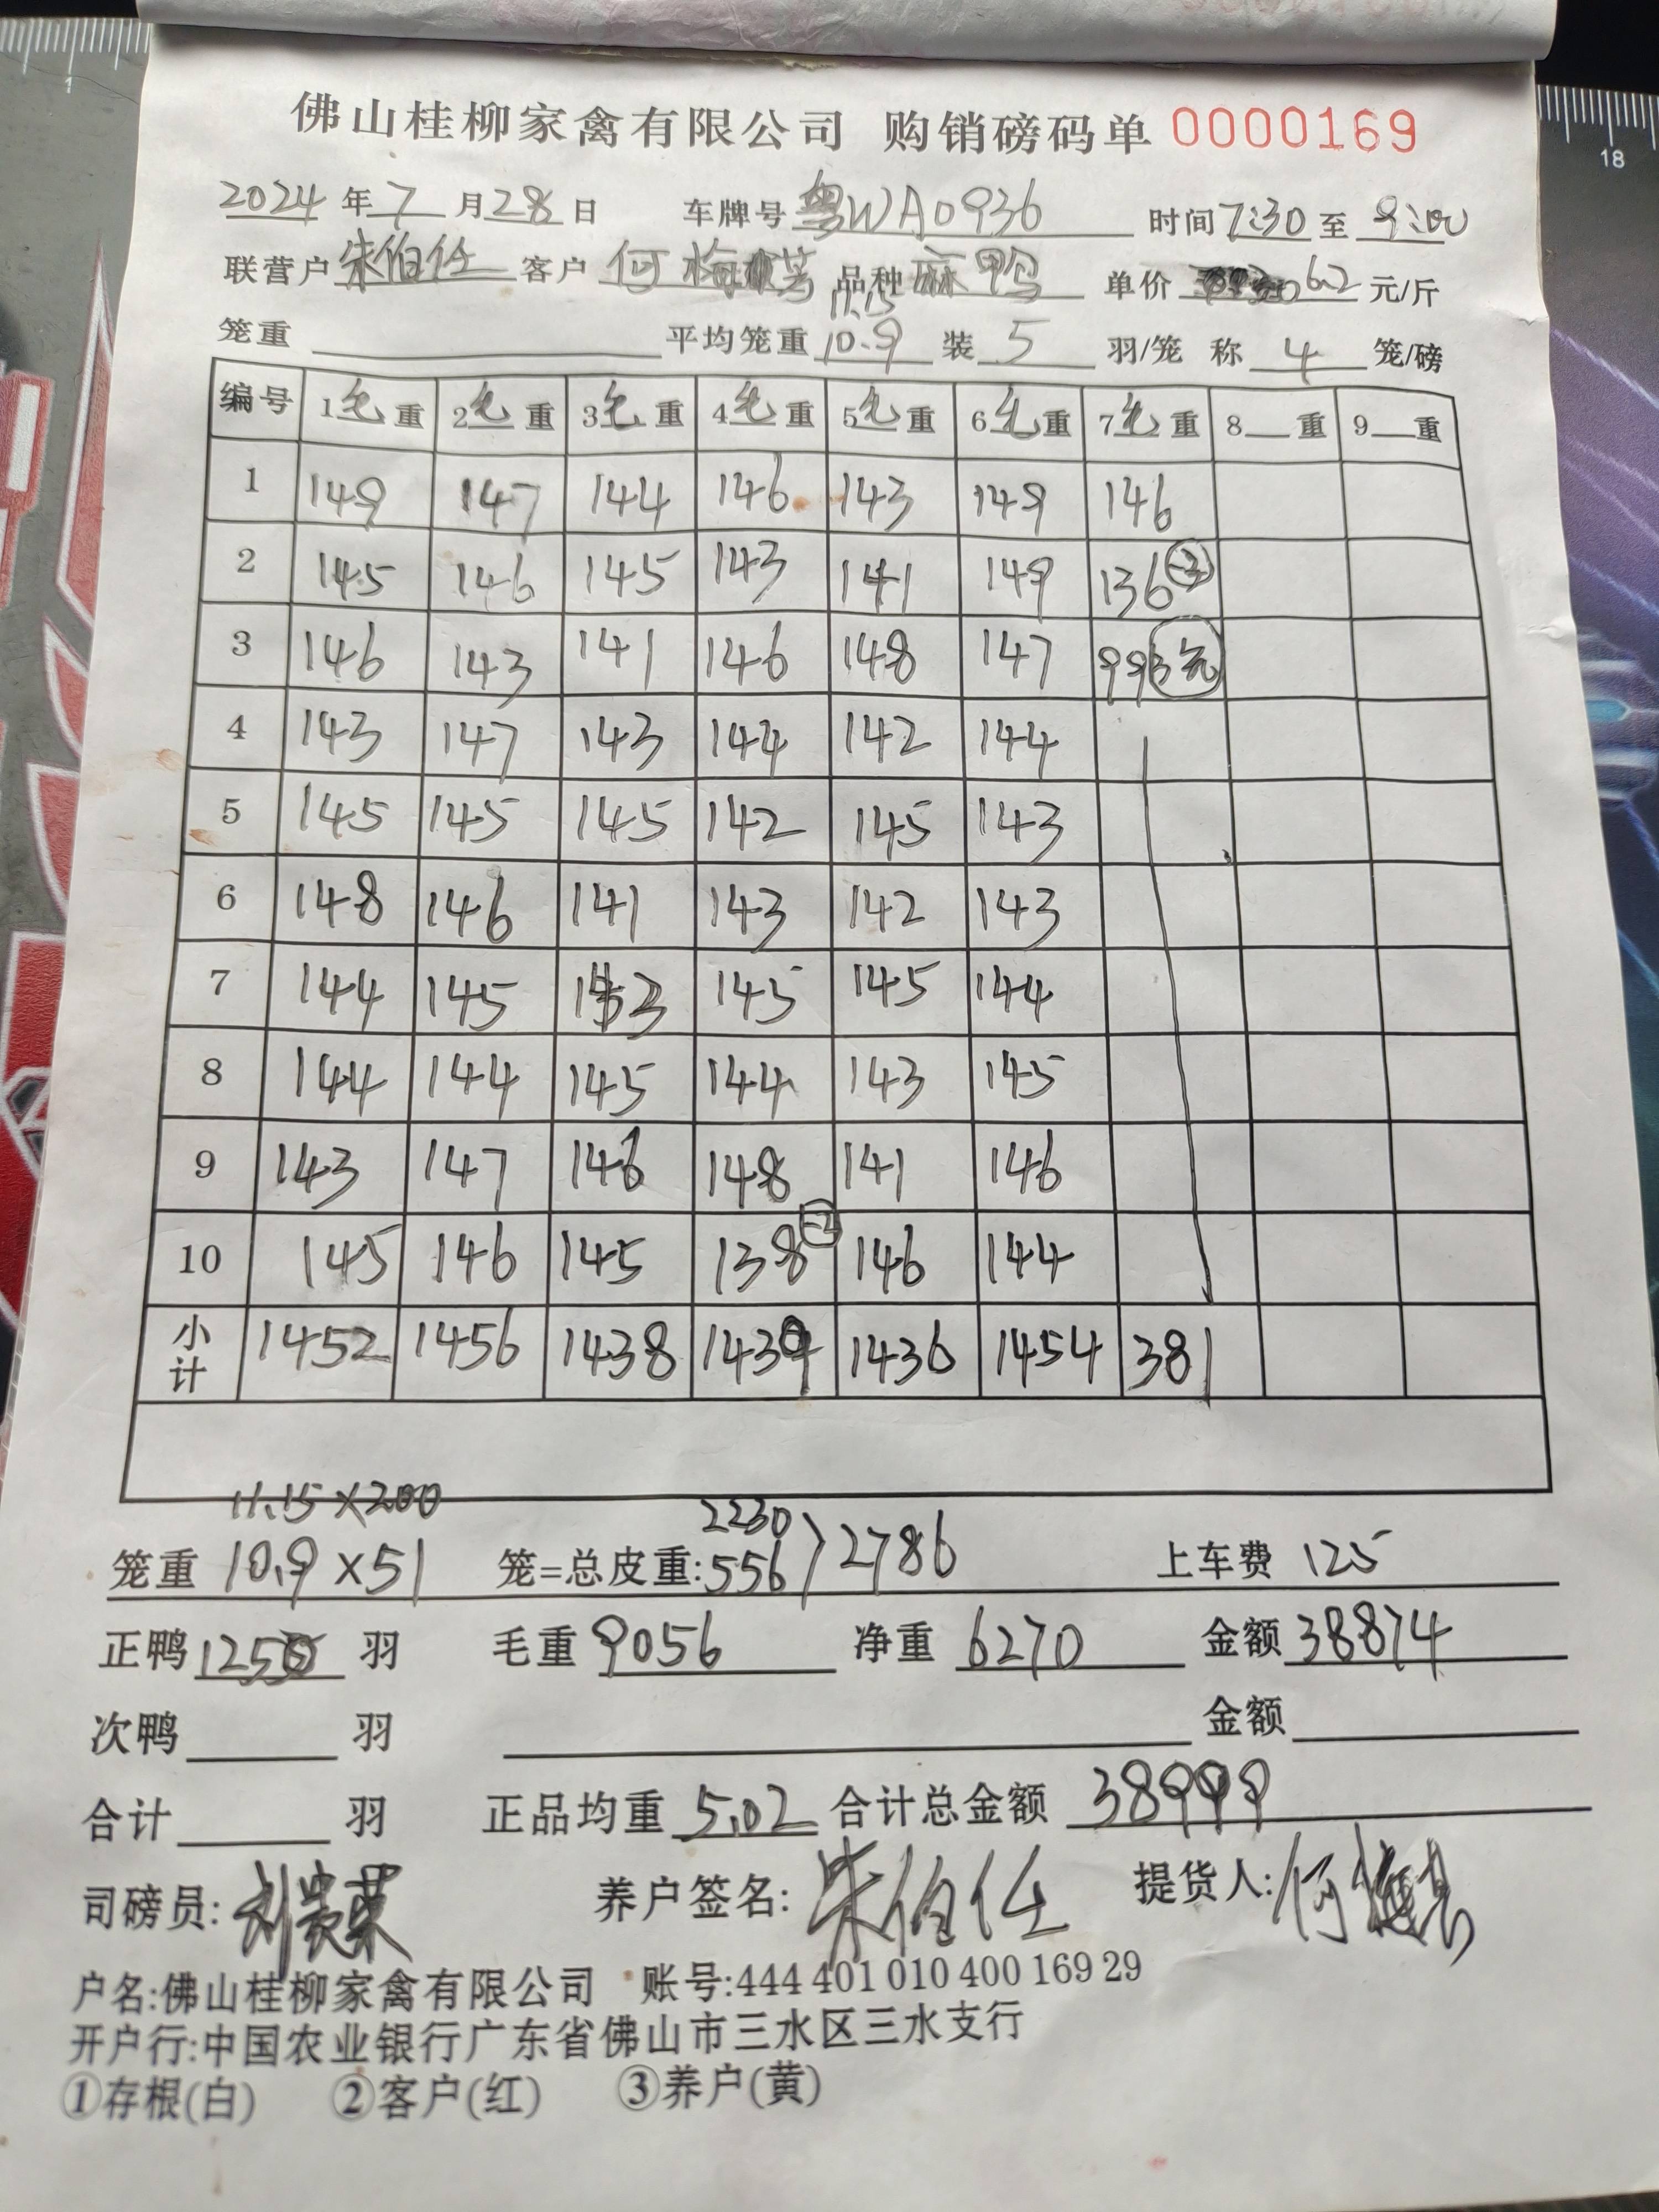 佛山桂柳家禽有限公司 购销磅码单 0000169
2024年7月28日 车牌号 粤WA0936 时间7:30至9:00
联营户 朱伯任 客户 何梅 品种 麻鸭 单价 6.2 元/斤
11.15
笼重 平均笼重 10.9 装 5 羽/笼 称 4 笼/磅
编号 1毛重 2毛重 3毛重 4毛重 5毛重 6毛重 7毛重 8重 9重
1 149 147 144 146 143 149 146
2 145 146 145 143 141 149 136
3 146 143 141 146 148 147 99
4 143 147 143 144 142 144
5 145 145 145 142 145 143
6 148 146 141 143 142 143
7 144 145 143 145 145 144
8 144 144 145 144 143 145
9 143 147 146 148 141 146
10 145 146 145 138 146 144
小计 1452 1456 1438 1439 1436 1454 381
11.15×200 2230
笼重 10.9×51 笼=总皮重:556 2786 上车费 125
正鸭 1250 羽 毛重 9056 净重 6270 金额 38874
次鸭 羽 金额
合计 羽 正品均重 5.02 合计总金额 38999
司磅员: 养户签名: 朱伯任 提货人: 何
户名:佛山桂柳家禽有限公司 账号:444 401 010 400 169 29
开户行:中国农业银行广东省佛山市三水区三水支行
①存根(白) ②客户(红) ③养户(黄)
1
18